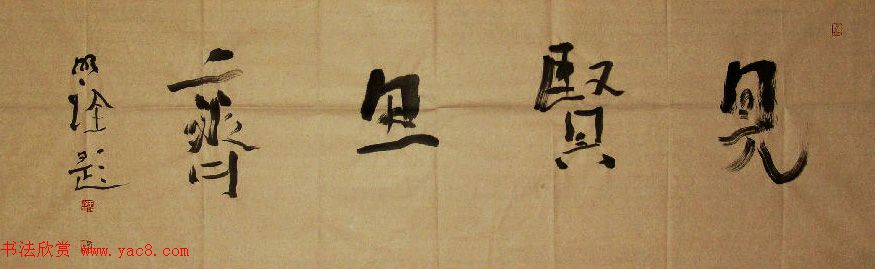 見賢思齊
题
书法欣赏 www.yac8.com